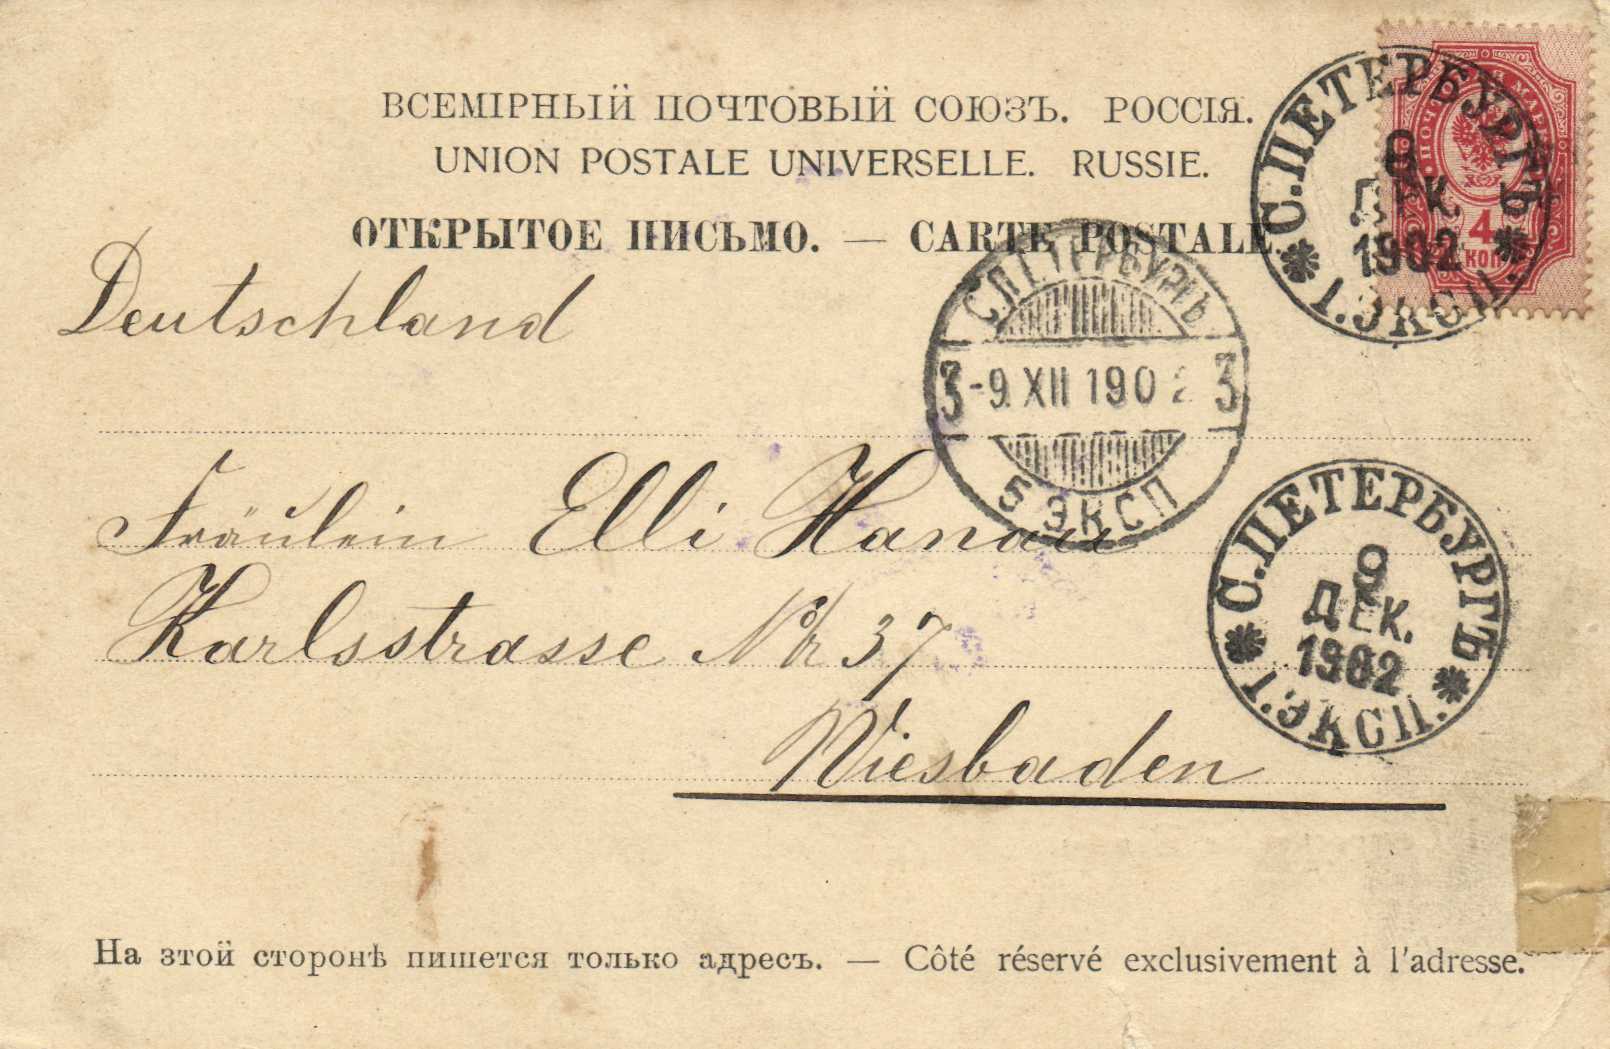 ВСЕМІРНЫЙ ПОЧТОВЫЙ СОЮЗЪ. РОССІЯ.
UNION POSTALE UNIVERSELLE. RUSSIE.
ОТКРЫТОЕ ПИСЬМО. — CARTE POSTALE.
С.ПЕТЕРБУРГЪ
8
ДЕК.
1902
1.ЭКСП.
4
КОП
Deutschland
С.ПЕТЕРБУРГЪ
3 -9.XII 1902 3
5 ЭКСП
Fräulein Elli Hanau
Karlsstrasse Nr 37
Wiesbaden
С.ПЕТЕРБУРГЪ
9
ДЕК.
1902
1.ЭКСП.
На этой сторонѣ пишется только адресъ. — Côté réservé exclusivement à l'adresse.